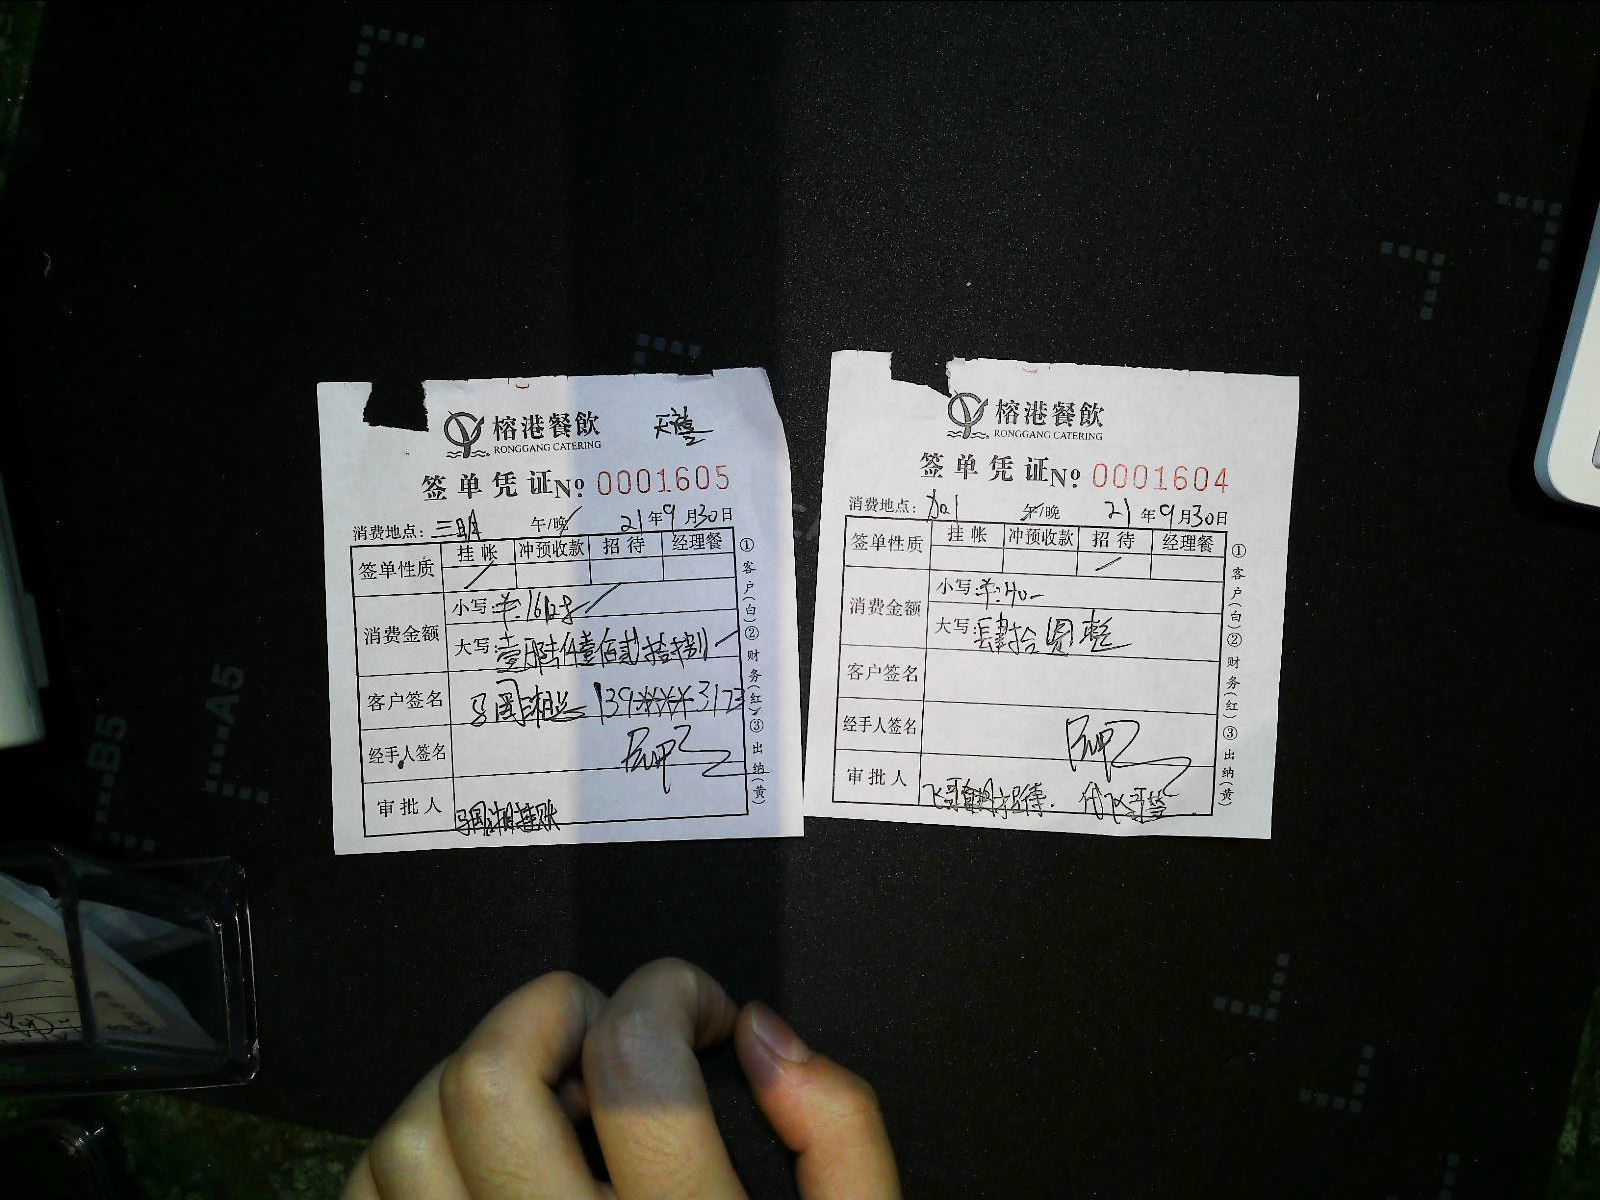 榕港餐飲
RONGGANG CATERING
签单凭证№ 0001605
消费地点: 三明 午/晚 21年9月30日
签单性质 挂帐 冲预收款 招待 经理餐
消费金额
小写:
大写:
客户签名 139****3173
经手人签名
审批人
①客户(白)②财务(红)③出纳(黄)
榕港餐飲
RONGGANG CATERING
签单凭证№ 0001604
消费地点: 午/晚 21年9月30日
签单性质 挂帐 冲预收款 招待 经理餐
消费金额
小写:¥:40-
大写:肆拾圆整
客户签名
经手人签名
审批人
①客户(白)②财务(红)③出纳(黄)
B5
A5